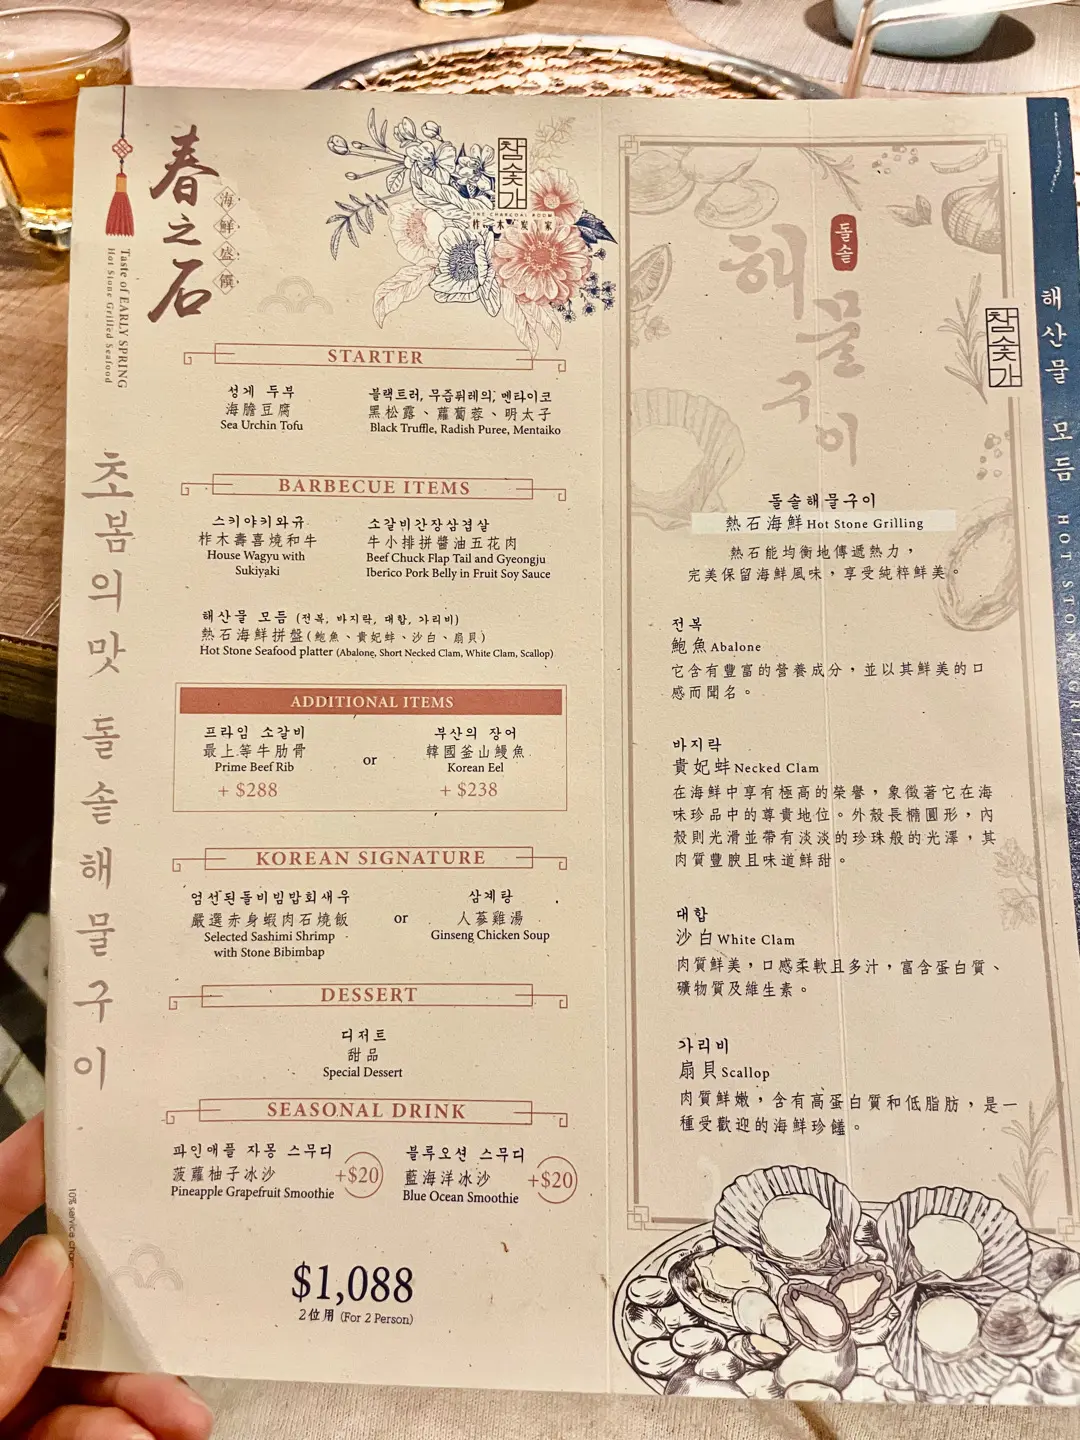 春之石
海鮮盛饌
Taste of EARLY SPRING
Hot Stone Grilled Seafood
초봄의 맛 돌솥해물구이
참숯가
THE CHARCOAL ROOM
柞木炭家
STARTER
성게 두부
海膽豆腐
Sea Urchin Tofu
블랙트러, 무즙퓌레의, 멘타이코
黑松露、蘿蔔蓉、明太子
Black Truffle, Radish Puree, Mentaiko
BARBECUE ITEMS
스키야키와규
柞木壽喜燒和牛
House Wagyu with
Sukiyaki
소갈비간장삼겹살
牛小排拼醬油五花肉
Beef Chuck Flap Tail and Gyeongju
Iberico Pork Belly in Fruit Soy Sauce
해산물 모듬 (전복, 바지락, 대합, 가리비)
熱石海鮮拼盤(鮑魚、貴妃蚌、沙白、扇貝)
Hot Stone Seafood platter (Abalone, Short Necked Clam, White Clam, Scallop)
ADDITIONAL ITEMS
프라임 소갈비
最上等牛肋骨
Prime Beef Rib
+ $288
or
부산의 장어
韓國釜山鰻魚
Korean Eel
+ $238
KOREAN SIGNATURE
엄선된돌비빔밥회새우
嚴選赤身蝦肉石燒飯
Selected Sashimi Shrimp
with Stone Bibimbap
or
삼계탕
人蔘雞湯
Ginseng Chicken Soup
DESSERT
디저트
甜品
Special Dessert
SEASONAL DRINK
파인애플 자몽 스무디
菠蘿柚子冰沙
Pineapple Grapefruit Smoothie
+$20
블루오션 스무디
藍海洋冰沙
Blue Ocean Smoothie
+$20
$1,088
2位用 (For 2 Person)
10% service char
돌솥
해물구이
참숯가
돌솥해물구이
熱石海鮮 Hot Stone Grilling
熱石能均衡地傳遞熱力，
完美保留海鮮風味，享受純粹鮮美。
전복
鮑魚 Abalone
它含有豐富的營養成分，並以其鮮美的口
感而聞名。
바지락
貴妃蚌 Necked Clam
在海鮮中享有極高的榮譽，象徵著它在海
味珍品中的尊貴地位。外殼長橢圓形，內
殼則光滑並帶有淡淡的珍珠般的光澤，其
肉質豐腴且味道鮮甜。
대합
沙白 White Clam
肉質鮮美，口感柔軟且多汁，富含蛋白質、
礦物質及維生素。
가리비
扇貝 Scallop
肉質鮮嫩，含有高蛋白質和低脂肪，是一
種受歡迎的海鮮珍饈。
해산물 모듬 HOT STONE GRI